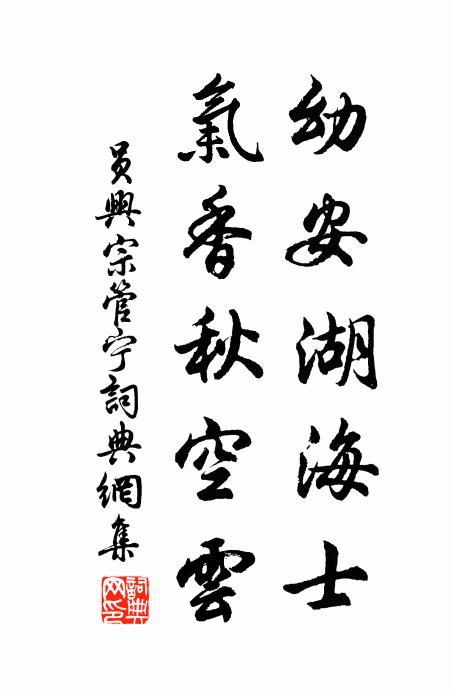 幼安湖海士
氣香秋空雲
員興宗管宁詞典網集
詞典网印